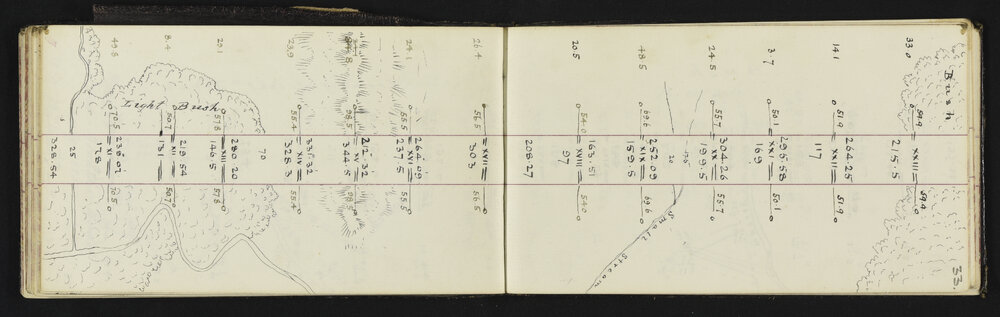 33.
Bush
33.0 59.4 XXIII 59.4
215.5
264.25
14.1 51.9 XXII 51.9
117
295.58
3.7 50.1 XXI 50.1
169
304.26
24.5 55.7 XX 55.7
199.5
Small Stream
20
252.09
48.5 69.6 XIX 69.6
159.5
163.51
20.5 54.0 XVIII 54.0
97
208.27
26.4 56.5 XVII 56.5
303
264.09
24.1 55.5 XVI 55.5
237.5
212.32
98.5 XV 98.5
344.5
333.32
23.9 55.4 XIV 55.4
328.3
70
280.20
29.1 57.8 XIII 57.8
146.5
Light Bush
219.54
8.4 50.7 XII 50.7
131
236.07
49.8 70.5 XI 70.5
178
25
328.54